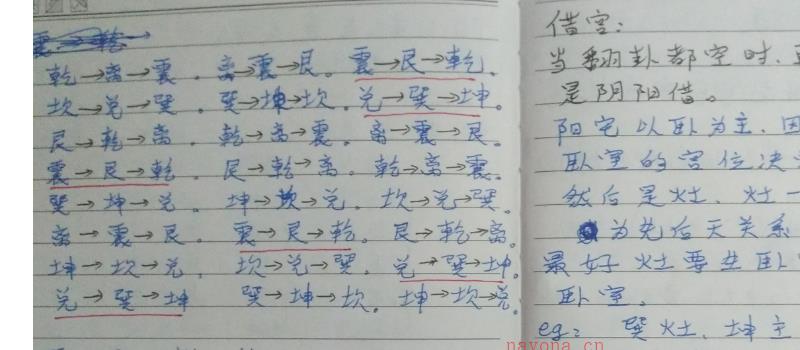 乾→离→震。离→震→艮。震→艮→乾。
坎→兑→巽。巽→坤→坎。兑→巽→坤。
艮→乾→离。乾→离→震。离→震→艮。
震→艮→乾。艮→乾→离。乾→离→震。
巽→坤→兑。坤→坎→兑。坎→兑→巽。
离→震→艮。震→艮→乾。艮→乾→离。
坤→坎→兑。坎→兑→巽。兑→巽→坤。
兑→巽→坤 巽→坤→坎。坤→坎→兑。
借宫:
当翻卦都空时,
是阴阳借。
阳宅以卧为主,因
卧室的宫位决
然后是灶、灶一
为先后天关系
最好灶要生卧
卧室。
eg: 巽灶、坤主
nayona.cn